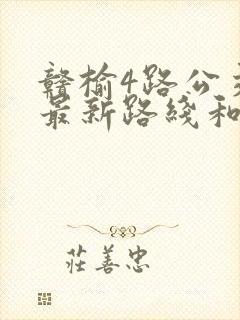 赣榆4路公交
最新路线和
莊善忠